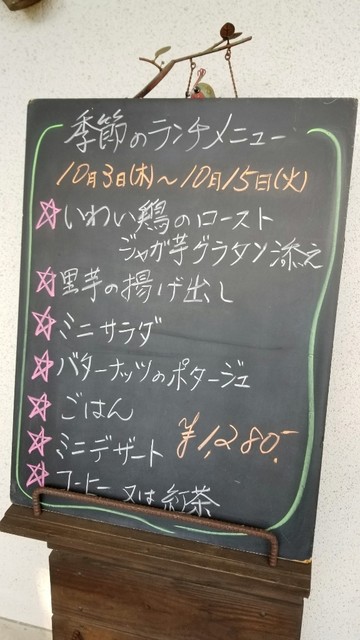 季節のランチメニュー
10月3日(木)～10月15日(火)
☆いわい鶏のロースト
ジャガ芋グラタン添え
☆里芋の揚げ出し
☆ミニサラダ
☆バターナッツのポタージュ
☆ごはん
☆ミニデザート ¥1,280.-
☆コーヒー 又は 紅茶